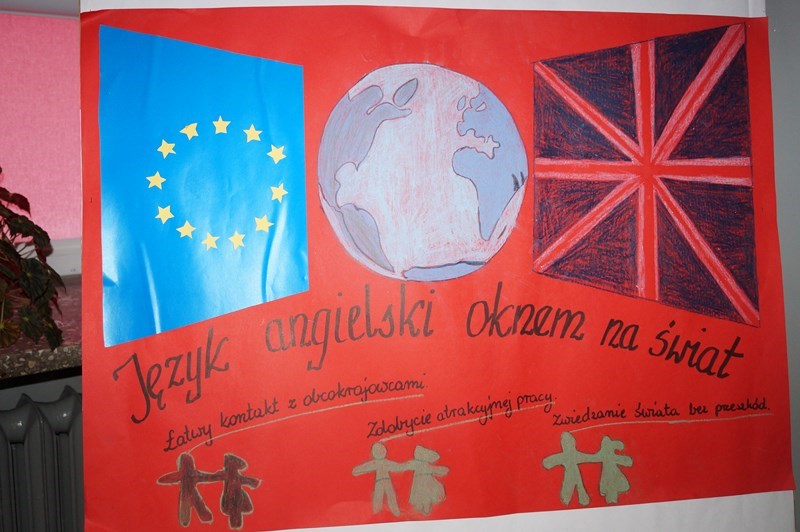 Język angielski oknem na świat
Łatwy kontakt z obcokrajowcami
Zdobycie atrakcyjnej pracy.
Zwiedzanie świata bez przeszkód.